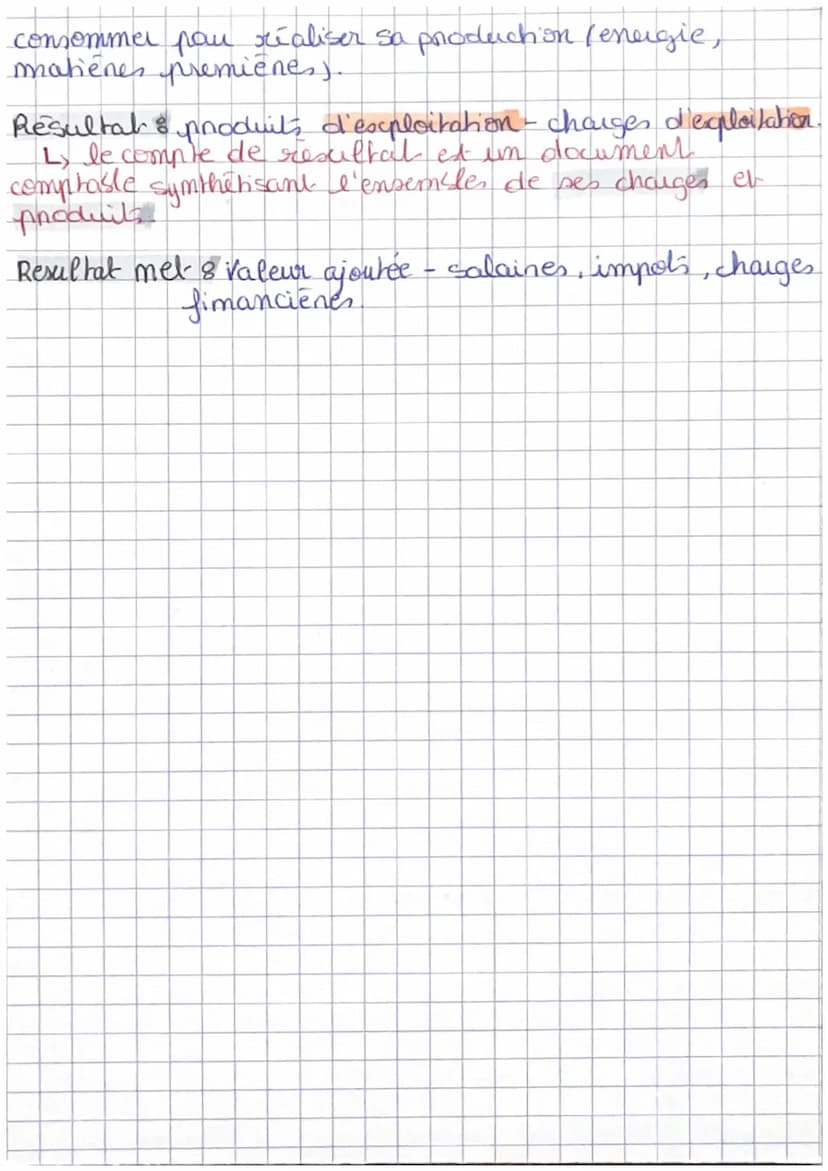 consommer pour réaliser sa production (energie,
matières premières).
Résultat : produits d'exploitation - charges d'exploitation.
↳ le compte de résultat est un document
comptable synthétisant l'ensemble de ses charges et
produits
Resultat net : Valeur ajoutée - salaires, impots, charges
financières